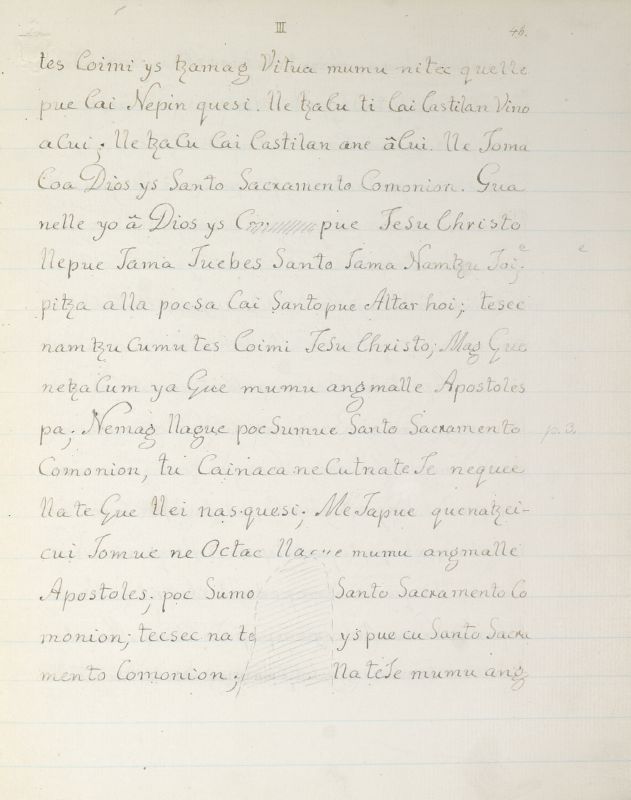 III 46.
tes Coimi ys tzamag Vitua mumu nitec quelle
pue Cai Nepin quesi. Ne tzaCu ti Cai Castilan Vino
aCui; Ne tzaCu Cai Castilan ane âCui. Ne Toma
Coa Dios ys Santo Sacramento Comonion. Gua
nelle yo â Dios ys pue Jesu Christo
Nepue Tama Juebes Santo Tama Namtzu Toi; e
pitza alla pocsa Cai Santo pue Altar hoi; tesec
nam tzu Cumu tes Coimi Jesu Christo; Mag Gue
netzaCum ya Gue mumu angmalle Apostoles
pa; Nemag Nague poc Sumue Santo Sacramento p. 3.
Comonion, tu Cainaca ne Cutnate Te nequei
Nate Gue Nei nas-quesi; Me Tapue quenatzei-
cui Tomue ne Octac mumu angmalle
Apostoles; poc Sumo Santo Sacramento Co
monion; tecsec nate ys pue cu Santo Sacra
mento Comonion; NateTe mumu ang